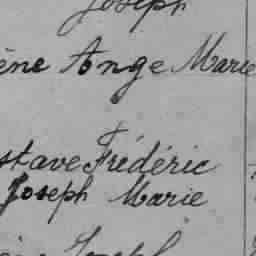 Joseph
ène Ange Marie
stave Frédéric
Joseph Marie
Joseph